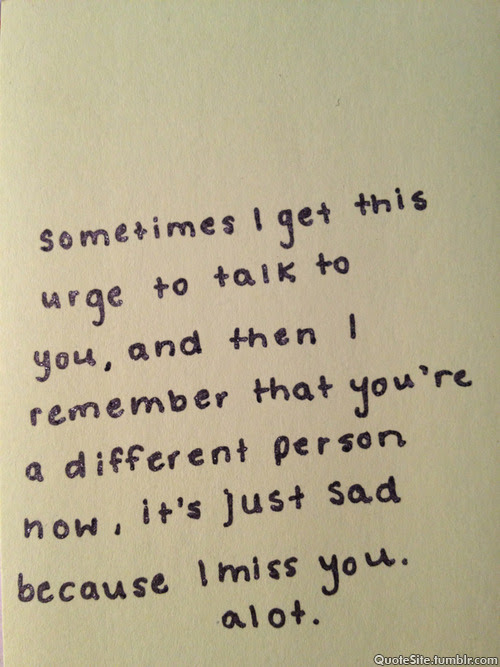 sometimes I get this
urge to talk to
you, and then I
remember that you're
a different person
now, it's just sad
because I miss you.
alot.
QuoteSite.tumblr.com